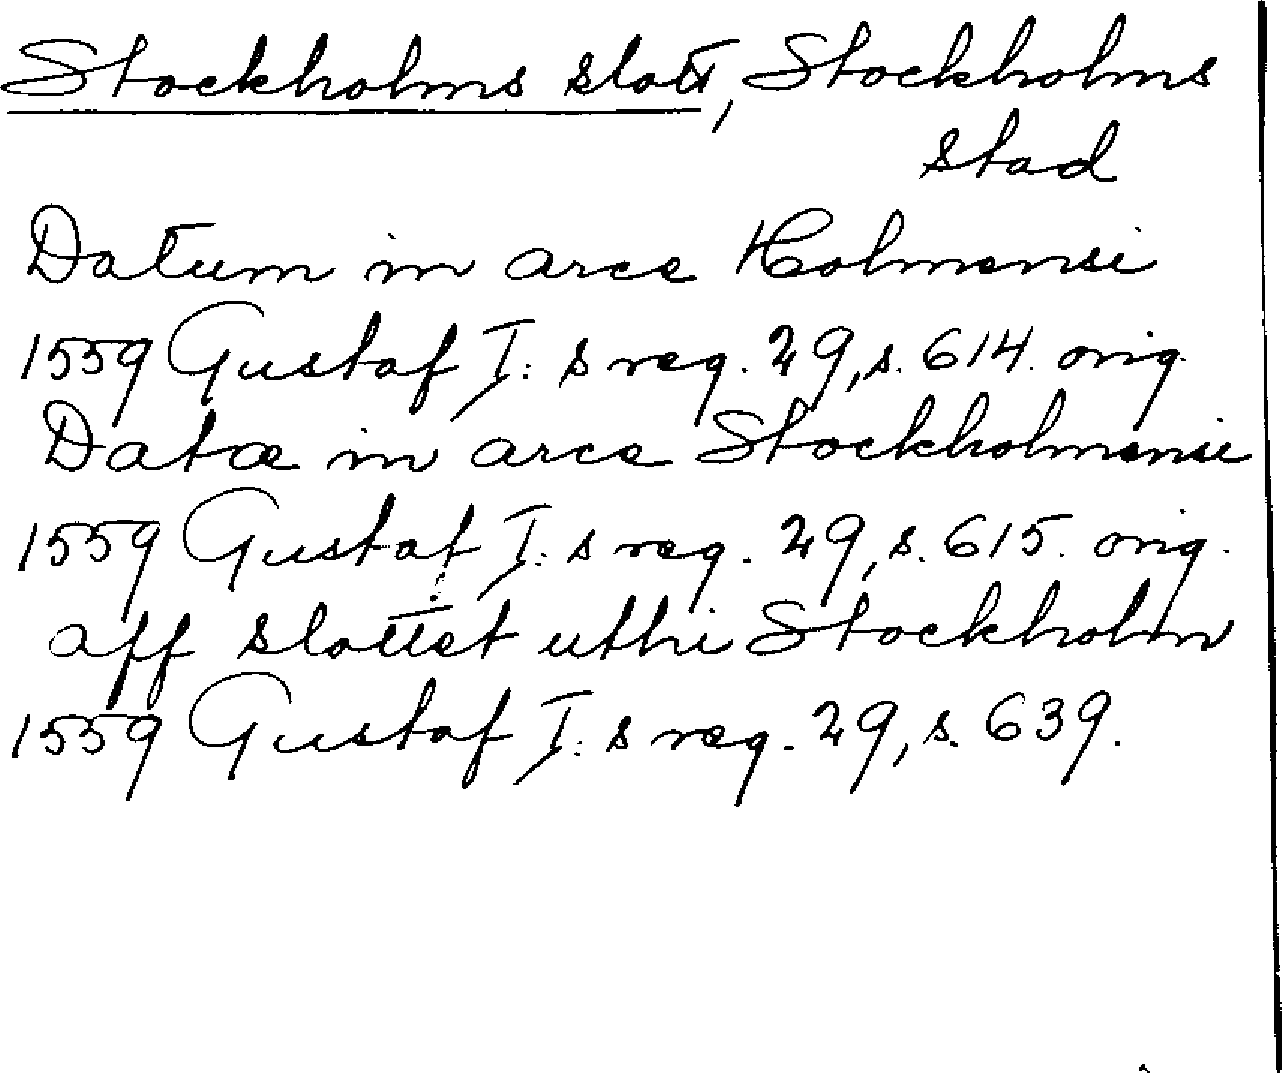 Stockholms slott, Stockholms
stad
Datum in arce Holmensi
1559 Gustaf I:s reg. 29, s. 614. orig.
Datæ in arce Stockholmensi
1559 Gustaf I:s reg. 29, s. 615. orig.
aff slottet uthi Stockholm
1559 Gustaf I:s reg. 29, s. 639.